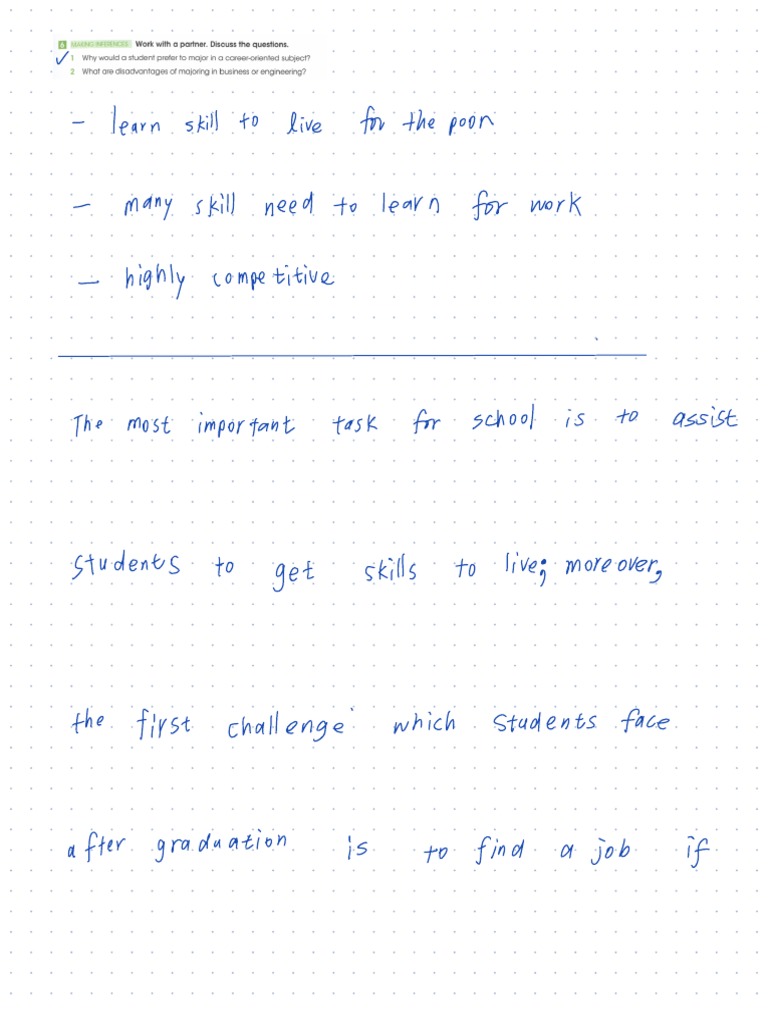 6 MAKING INFERENCES Work with a partner. Discuss the questions.
1 Why would a student prefer to major in a career-oriented subject?
2 What are disadvantages of majoring in business or engineering?
- learn skill to live for the poor
- many skill need to learn for work
- highly competitive
The most important task for school is to assist
students to get skills to live; moreover,
the first challenge which students face
after graduation is to find a job if